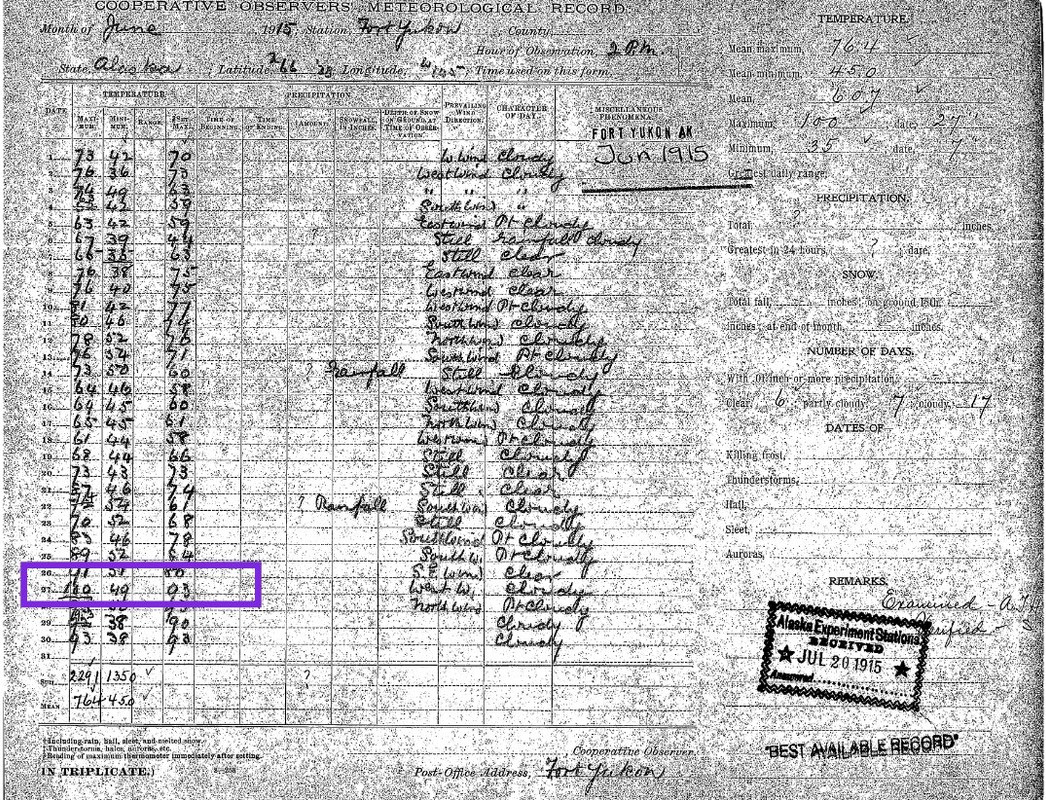 COOPERATIVE OBSERVERS' METEOROLOGICAL RECORD.
Month of June, 1915 Station, Fort Yukon, County,
Hour of Observation 2 P.m.
State, Alaska, Latitude, 66 Longitude, Time used on this form,
TEMPERATURE. PRECIPITATION.
DATE MAXI-MUM. MINI-MUM. RANGE. SET MAX. TIME OF BEGINNING. TIME OF ENDING. AMOUNT. SNOWFALL, IN INCHES. DEPTH OF SNOW ON GROUND AT TIME OF OBSERVATION. PREVAILING WIND DIRECTION. CHARACTER OF DAY. MISCELLANEOUS PHENOMENA.
FORT YUKON AK
Jun 1915
1 73 42 70 W. Wind Cloudy
2 76 36 73 West Wind Cloudy
3 74 49 63 " " "
4 42 59 South Wind "
5 63 42 59 East wind Pt Cloudy
6 67 39 44 ? Still rainfall Cloudy
7 35 63 Still Clear
8 76 38 75 East Wind Clear
9 76 40 75 West wind Clear
10 81 42 77 West wind Pt Cloudy
11 80 46 74 South wind Cloudy
12 78 52 76 North wind Cloudy
13 76 54 71 South Wind Pt Cloudy
14 73 50 60 ? Rainfall Still Cloudy
15 64 46 58 West wind Cloudy
16 64 45 60 South win Cloudy
17 65 45 61 North wind Cloudy
18 61 44 58 West wind Pt Cloudy
19 68 44 66 Still Cloudy
20 73 43 73 Still Clear
21 46 74 Still Clear
22 72 54 61 ? Rainfall South wind Cloudy
23 70 52 68 Still Cloudy
24 83 46 78 South West Pt Cloudy
25 89 52 84 South W. Pt Cloudy
26 91 51 80 Wind Clear
27 100 49 93 West W. Cloudy
28 North wind Pt Cloudy
29 38 90 Cloudy
30 93 38 93 Cloudy
31
SUM 2291 1350 ?
MEAN 764 450
*Including rain, hail, sleet, and melted snow.
†Thunderstorms, halos, auroras, etc.
‡Reading of maximum thermometer immediately after setting.
IN TRIPLICATE.)
Cooperative Observer.
Post-Office Address, Fort Yukon
TEMPERATURE.
Mean maximum, 76.4
Mean minimum, 45.0
Mean, 60.7
Maximum, 100 date, 27
Minimum, 35 date, 7
Greatest daily range,
PRECIPITATION.
Total, ? inches.
Greatest in 24 hours, ? date,
SNOW.
Total fall, inches; on ground 15th,
inches; at end of month, inches.
NUMBER OF DAYS.
With .01 inch or more precipitation,
Clear, 6 partly cloudy, 7 cloudy, 17
DATES OF—
Killing frost,
Thunderstorms,
Hail,
Sleet,
Auroras,
REMARKS.
Examined - A.T.
Verified -
Alaska Experiment Stations
RECEIVED
★ JUL 20 1915 ★
Answered
"BEST AVAILABLE RECORD"